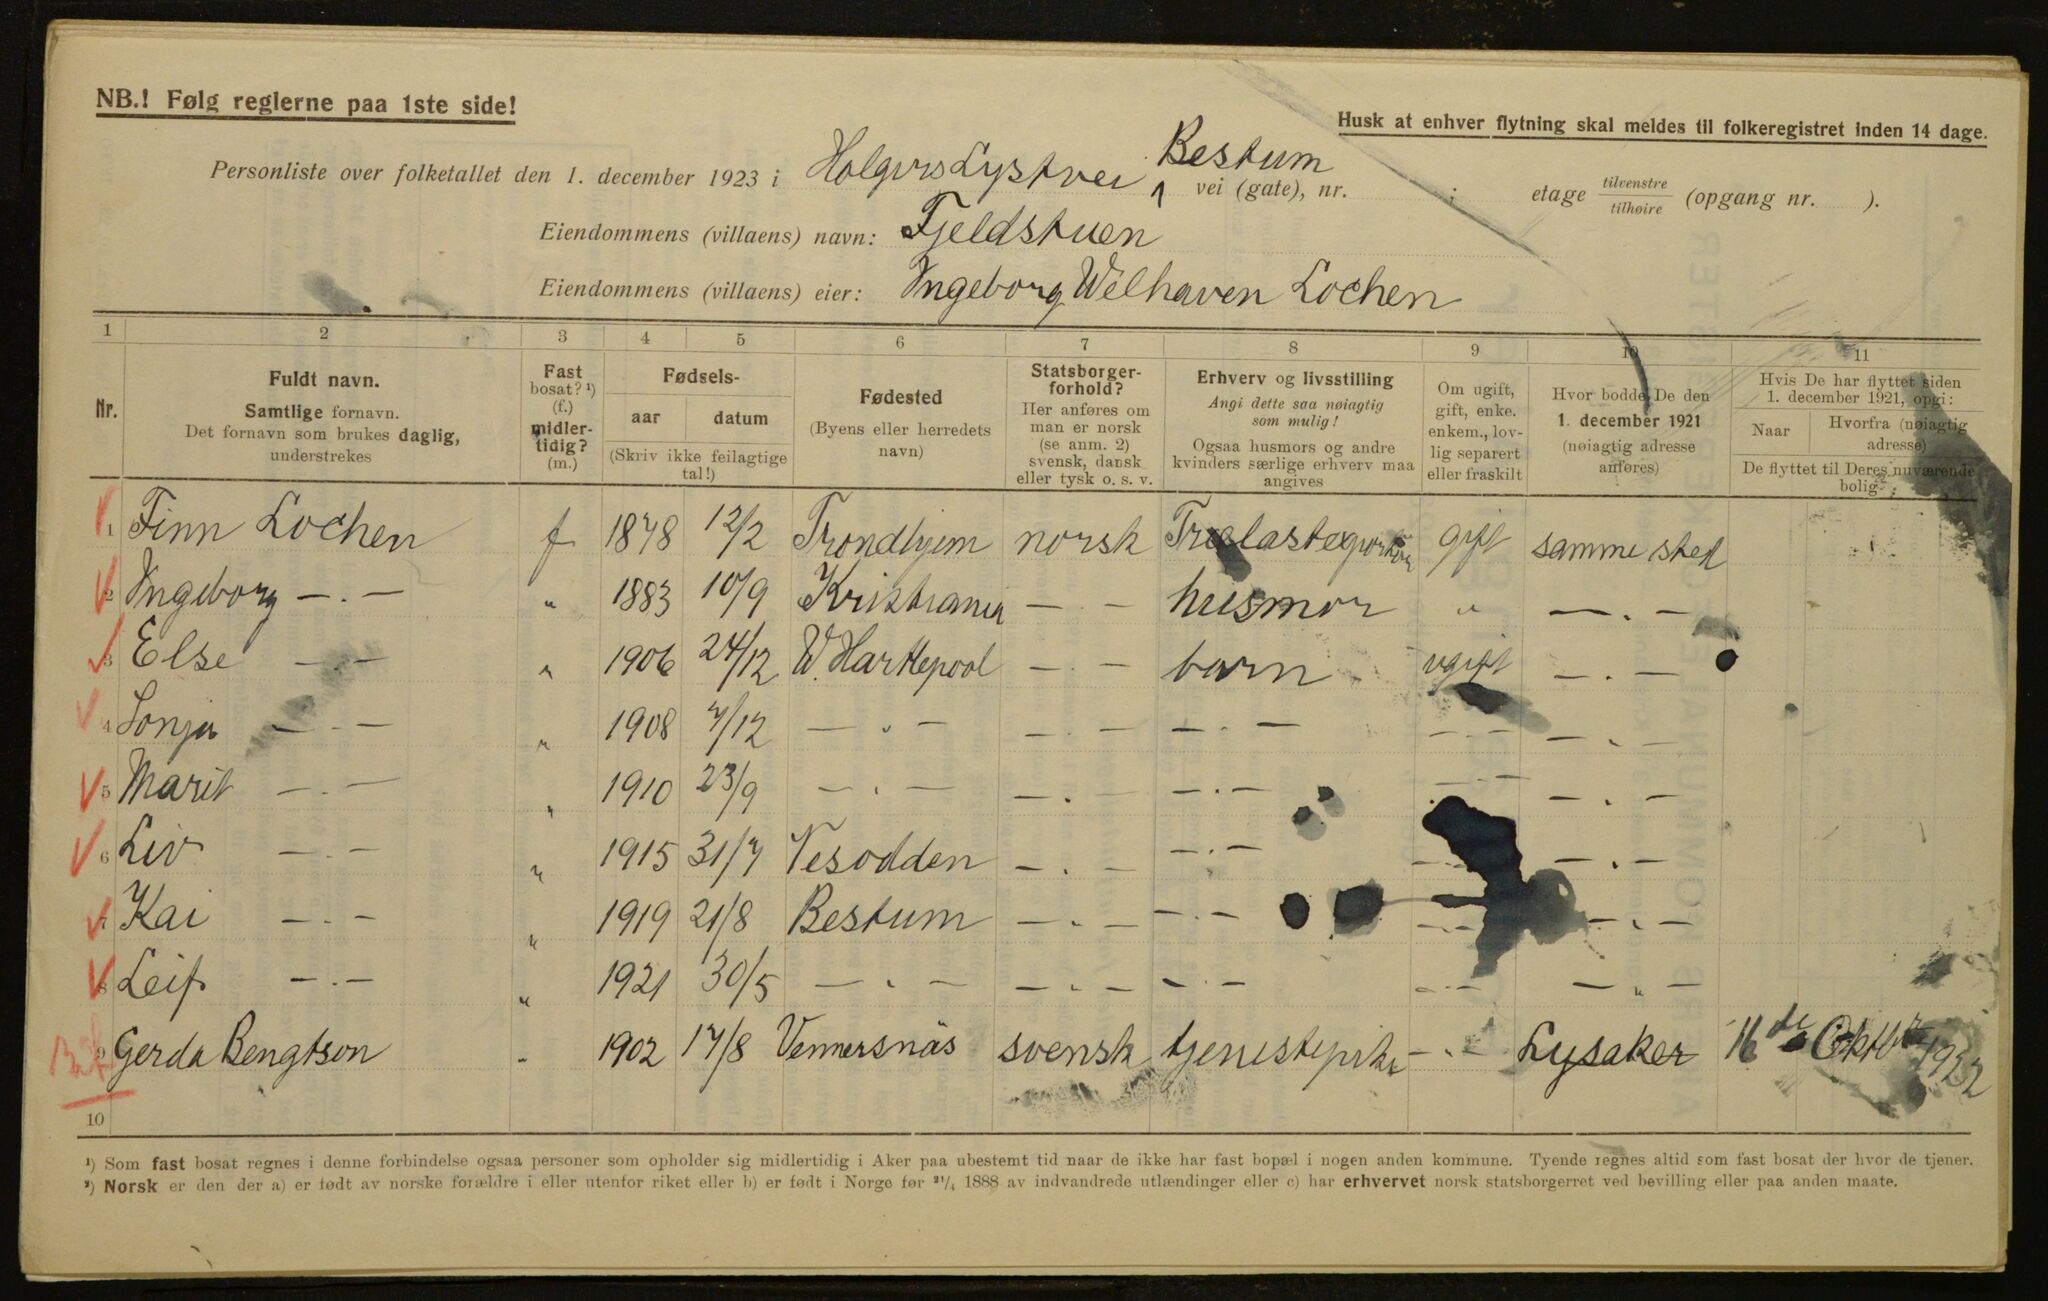 NB.! Følg reglerne paa 1ste side!
Husk at enhver flytning skal meldes til folkeregistret inden 14 dage.
Bestum
Personliste over folketallet den 1. december 1923 i Holgerslystvei vei (gate), nr. ; etage tilvenstre tilhøire (opgang nr. ).
Eiendommens (villaens) navn: Fjeldstuen
Eiendommens (villaens) eier: Ingeborg Welhaven Lochen
1 2 3 4 5 6 7 8 9 10 11
Nr.
Fuldt navn.
Samtlige fornavn.
Det fornavn som brukes daglig,
understrekes
Fast
bosat? ¹)
(f.)
midler-
tidig?
(m.)
Fødsels-
aar datum
(Skriv ikke feilagtige
tal!)
Fødested
(Byens eller herredets
navn)
Statsborger-
forhold?
Her anføres om
man er norsk
(se anm. 2)
svensk, dansk
eller tysk o. s. v.
Erhverv og livsstilling
Angi dette saa nøiagtig
som mulig!
Ogsaa husmors og andre
kvinders særlige erhverv maa
angives
Om ugift,
gift, enke.
enkem., lov-
lig separert
eller fraskilt
Hvor bodde De den
1. december 1921
(nøiagtig adresse
anføres)
Hvis De har flyttet siden
1. december 1921, opgi:
Naar Hvorfra (nøiagtig
adresse)
De flyttet til Deres nuværende
bolig
1 Finn Lochen f 1878 12/2 Trondhjem norsk Trælasteksportør gift samme sted
2 Ingeborg —.— " 1883 10/9 Kristiania —.— husmor " —.—
3 Else —.— " 1906 24/12 W. Hartlepool —.— barn ugift —.—
4 Sonja —.— " 1908 7/12 —.— —.— —.— —.— —.—
5 Marit —.— " 1910 23/9 —.— —.— —.— —.— —.—
6 Liv —.— " 1915 31/7 Nesodden —.— —.— —.— —.—
7 Kai —.— " 1919 21/8 Bestum —.— —.— —.— —.—
8 Leif —.— " 1921 30/5 —.— —.— —.— —.— —.—
9 Gerda Bengtson " 1902 17/8 Vennersnäs svensk tjenestepike —.— Lysaker 16 de Oktbr 1922
10
¹) Som fast bosat regnes i denne forbindelse ogsaa personer som opholder sig midlertidig i Aker paa ubestemt tid naar de ikke har fast bopæl i nogen anden kommune. Tyende regnes altid som fast bosat der hvor de tjener.
²) Norsk er den der a) er født av norske forældre i eller utenfor riket eller b) er født i Norge før ²¹/₄ 1888 av indvandrede utlændinger eller c) har erhvervet norsk statsborgerret ved bevilling eller paa anden maate.